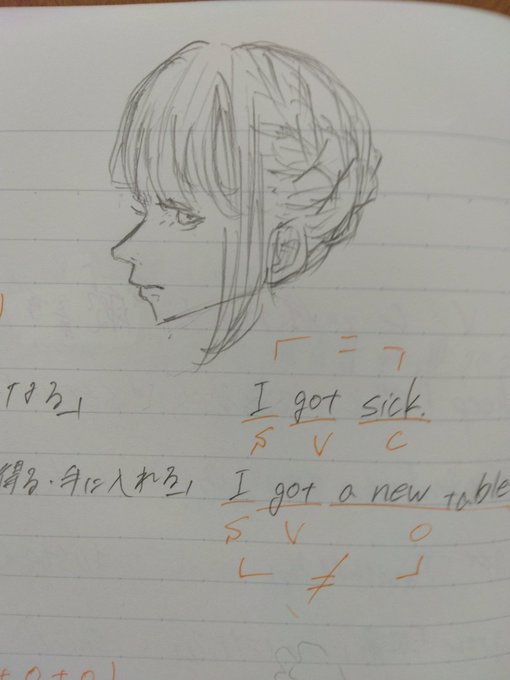 =
する」 I got sick.
S V C
得る・手に入れる」 I got a new table
S V O
≠
+ O + O)